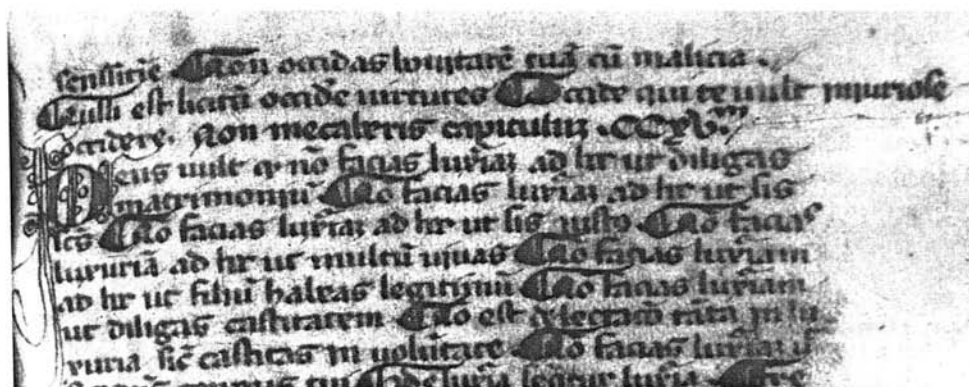 sensitiē Non occidas bōitatē tuā cū malicia.
Nulli est licitū occidē uirtutes Occide qui te uult iniuriose
occidere. Non mecaberis capitulum .CCXV.m
Deus uult qͥ nō facias luxͥiaꝫ ad hͦ ut diligas
matrimoniū No facias luxͥiaꝫ ad hͦ ut sis
No facias luxͥiaꝫ ad hͦ ut sis iustꝰ No facias
luxuriā ad hͦ ut multū uiuas No facias luxͥiam
ad hͦ ut filiū habeas legitimū No facias luxͥiam
ut diligas castitatem No est delectacō tāta in lu
xuria sic̄ castitas in uolūtate No facias luxͥiaꝫ
tempus tui De luxͥia legitur luxͥia